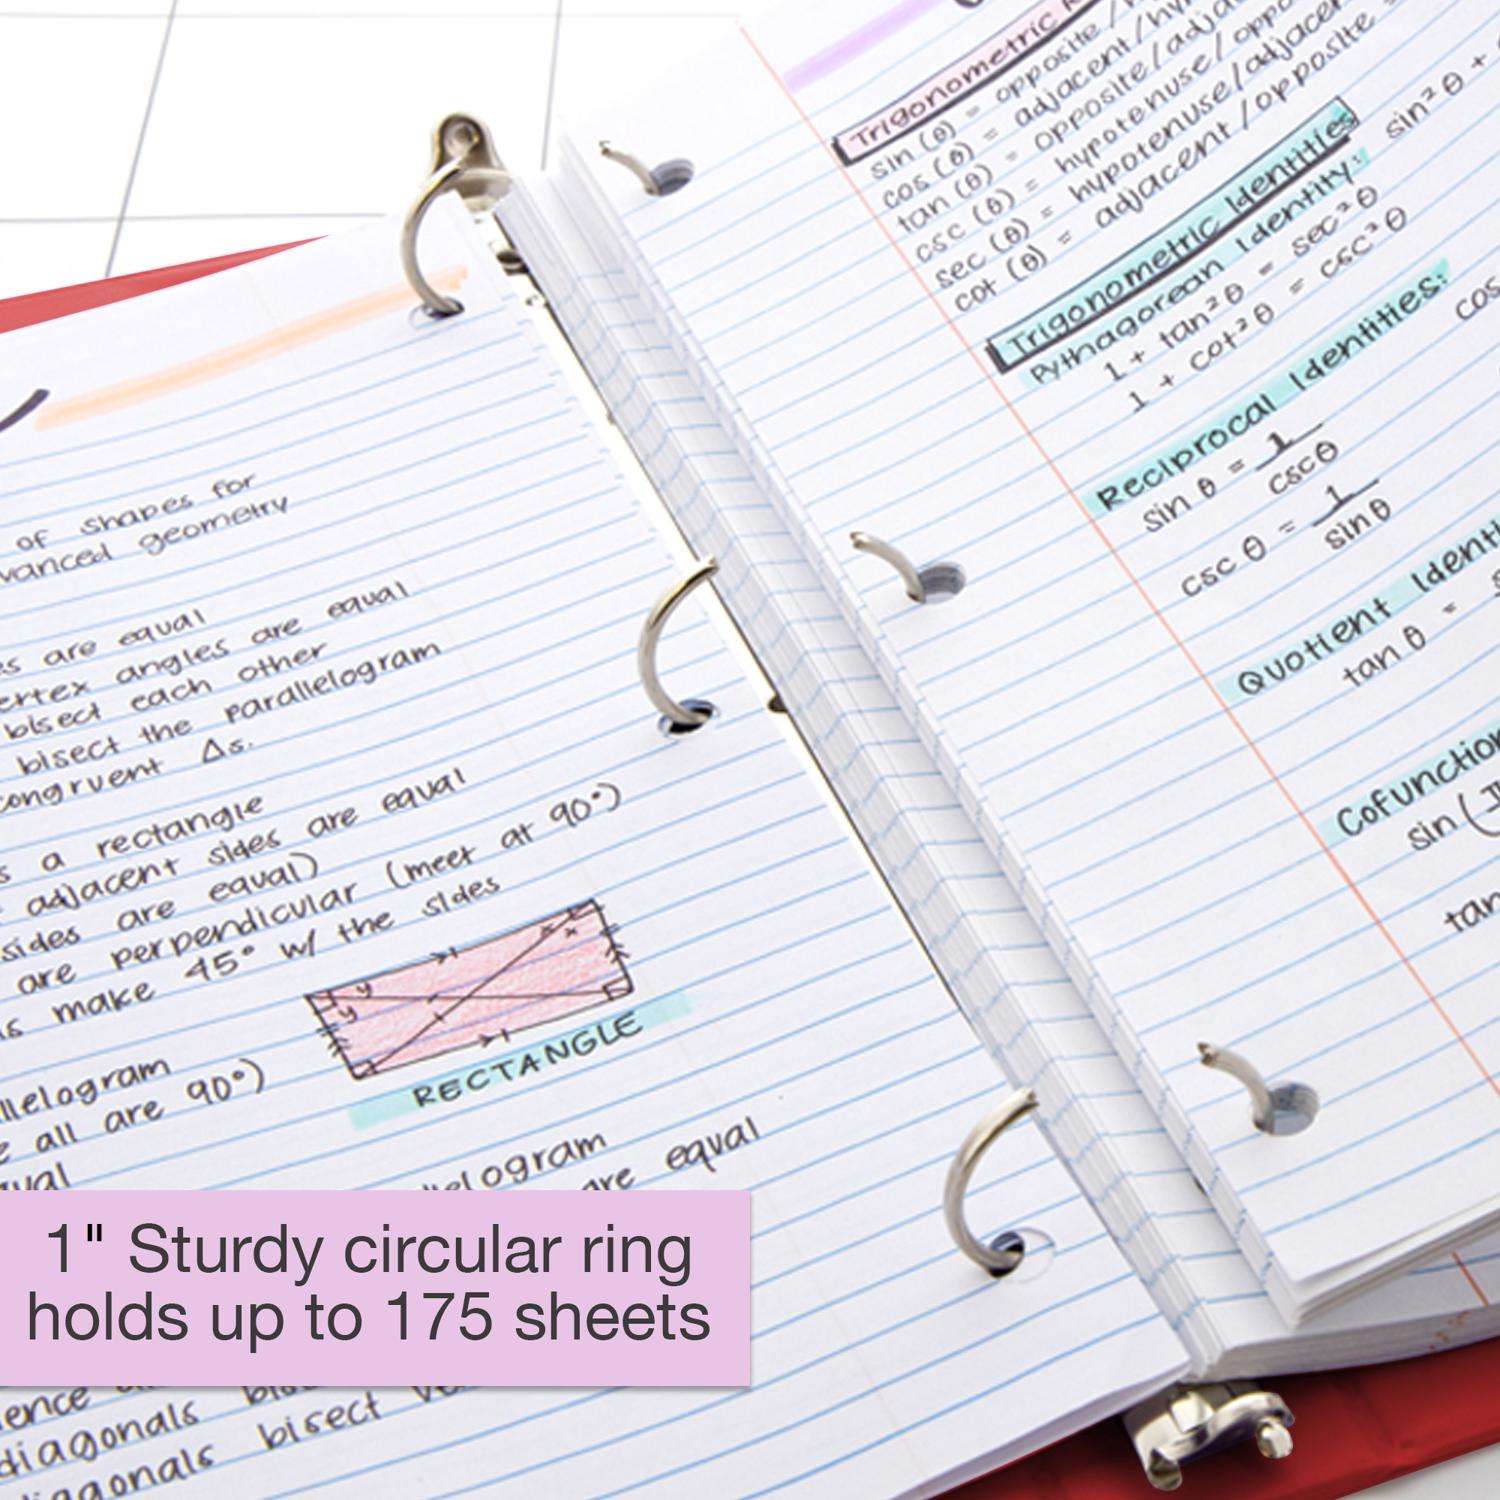 of shapes for
vanced geometry
es are equal
ertex angles are equal
bisect each other
bisect the parallelogram
congruent Δs.
s a rectangle
adjacent sides are equal
sides are equal)
are perpendicular (meet at 90°)
s make 45° w/ the sides
RECTANGLE
llelogram
e all are 90°)
llelogram
are equal
1" Sturdy circular ring
holds up to 175 sheets
ience
diagonals
diagonals bisect
Trigonometric
sin (θ) = opposite /
cos (θ) = adjacent/hy
tan (θ) = opposite/adja
csc (θ) = hypotenuse/oppo
sec (θ) = hypotenuse/adjacen
cot (θ) = adjacent/opposite
Trigonometric Identities
Pythagorean Identity: sin²θ +
1 + tan²θ = sec²θ
1 + cot²θ = csc²θ
Reciprocal Identities: cos
sin θ = 1
cscθ
csc θ = 1
sinθ
Quotient Identi
tan θ =
Cofunction
sin (
tan